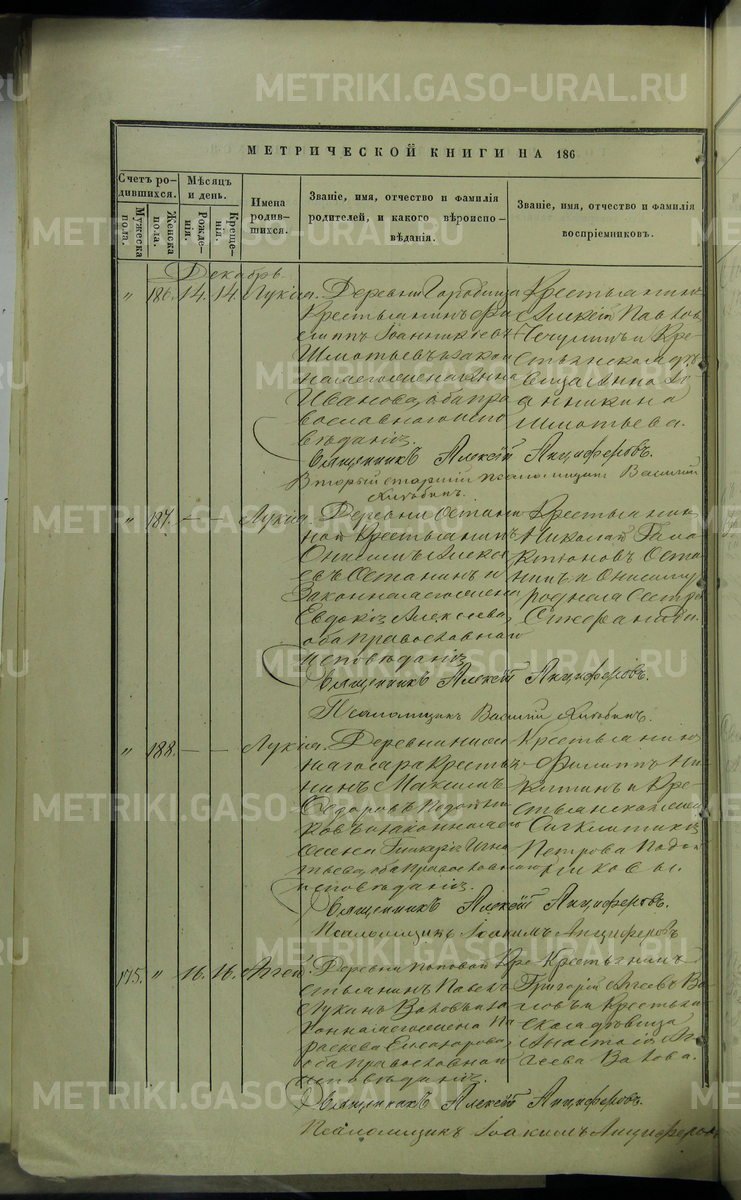 METRIKI.GASO-URAL.RU
МЕТРИЧЕСКОЙ КНИГИ НА 186
Счетъ родившихся.
Мужеска пола.
Женска пола.
Мѣсяцъ и день.
Рожденія.
Крещенія.
Имена родившихся.
Званіе, имя, отчество и фамилія родителей, и какого вѣроисповѣданія.
Званіе, имя, отчество и фамилія воспріемниковъ.
Декабрь
" 186. 14. 14. Лукія.
Деревни
Крестьянинъ
Іоанникіевъ
Шмотьевъ и закон
ная его жена Анна
Иванова, оба пра
вославнаго испо
вѣданія.
Крестьянинъ
Алексѣй Павлов
Чечулинъ и Кре
стьянская дѣ
вица Анна Іо
анникіна
Шмотьева.
Священникъ Алексій Анциферовъ.
Второй старшій псаломщикъ Василій
" 187. — — Лукія.
Деревни Остани
ной Крестьянинъ
Онисимъ Алексѣ
евъ Останинъ и
Законная его жена
Евдокія Алексѣева,
оба православнаго
исповѣданія.
Крестьянинъ
Николай Гала
ктіоновъ Оста
нинъ и Онисиму
родная сестра
Священникъ Алексій Анциферовъ.
Псаломщикъ Василій
" 188. — — Лукія.
Деревни
Кресть
нинъ Максимъ
Ѳедоровъ
ковъ и законная его
жена Гликерія Игна
тьева, оба православнаго
исповѣданія.
Крестьянинъ
Филиппъ Ни
китинъ и Кре
стьянская
Петрова
Священникъ Алексій Анциферовъ.
Псаломщикъ Іоакимъ Анциферовъ
175. " 16. 16. Аггей.
Деревни Поповой Кре
стьянинъ Павелъ
Лукинъ Воховъ и за
конная его жена Па
раскева Елеазарова,
оба православнаго
исповѣданія.
Крестьянинъ
Григорій Аггеевъ Во
ховъ и Крестьян
ская дѣвица
Анастасія Аг
геева Вохова.
Священникъ Алексій Анциферовъ.
Псаломщикъ Іоакимъ Анциферовъ